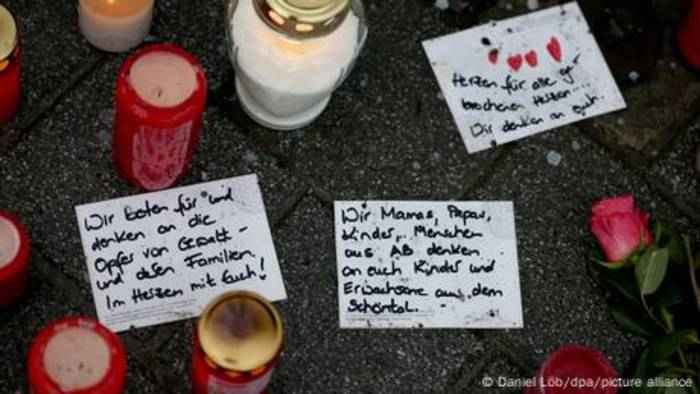 Herzen für alle ge-
brochenen Herzen....
Wir denken an euch.
Wir beten für und
denken an die
Opfer von Gewalt -
und deren Familien.
Im Herzen mit Euch!
Wir Mamas, Papas,
Kinder, Menschen
aus AB denken
an euch Kinder und
Erwachsene aus dem
Schöntal.
© Daniel Löb/dpa/picture alliance